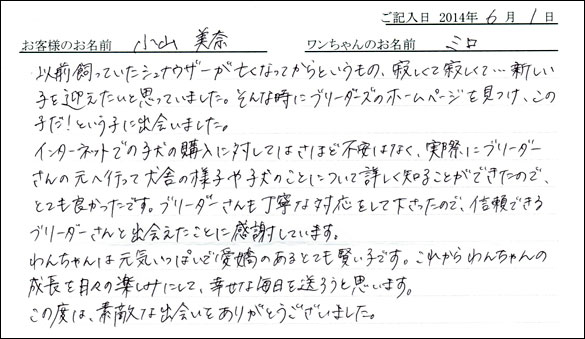 ご記入日 2014年 6月 1日
お客様のお名前 小山 美奈 ワンちゃんのお名前 ミロ
以前飼っていたシュナウザーが亡くなってからというもの、寂しくて寂しくて…新しい
子を迎えたいと思っていました。そんな時にブリーダーズのホームページを見つけ、この
子だ!という子に出会いました。
インターネットでの子犬の購入に対してはさほど不安はなく、実際にブリーダー
さんの元へ行って犬舎の様子や子犬のことについて詳しく知ることができたので、
とても良かったです。ブリーダーさんも丁寧な対応をして下さったので、信頼できる
ブリーダーさんと出会えたことに感謝しています。
わんちゃんは元気いっぱいで愛嬌のあるとても賢い子です。これからわんちゃんの
成長を日々の楽しみにして、幸せな毎日を送ろうと思います。
この度は、素敵な出会いをありがとうございました。